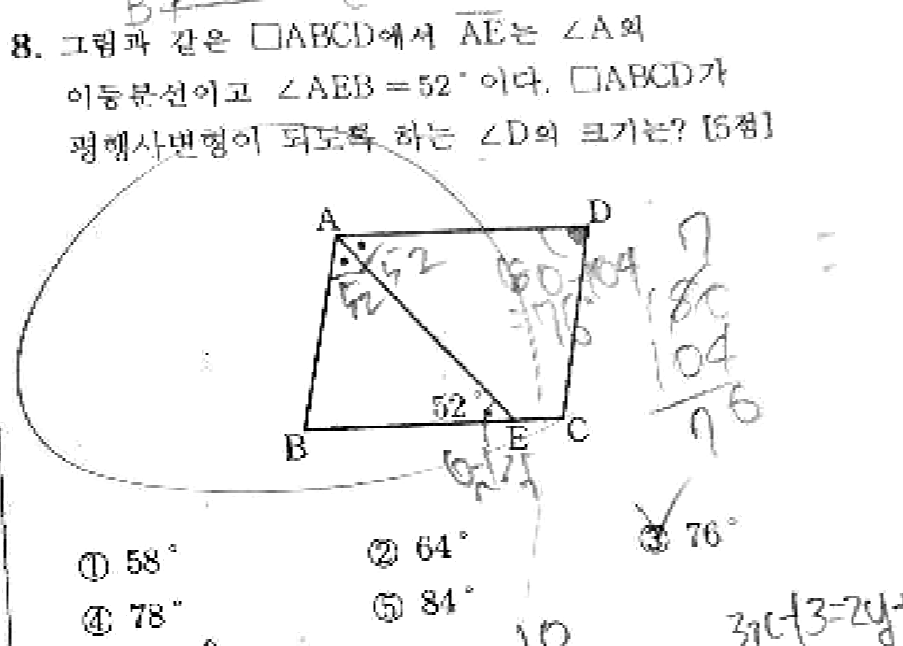 8. 그림과 같은 □ABCD에서 AE는 ∠A의
이등분선이고 ∠AEB = 52°이다. □ABCD가
평행사변형이 되도록 하는 ∠D의 크기는? [5점]
A
D
52
52
180-104
=76
7
180
104
76
52°
B
E
C
엇각
① 58°
② 64°
③ 76°
④ 78°
⑤ 84°
10